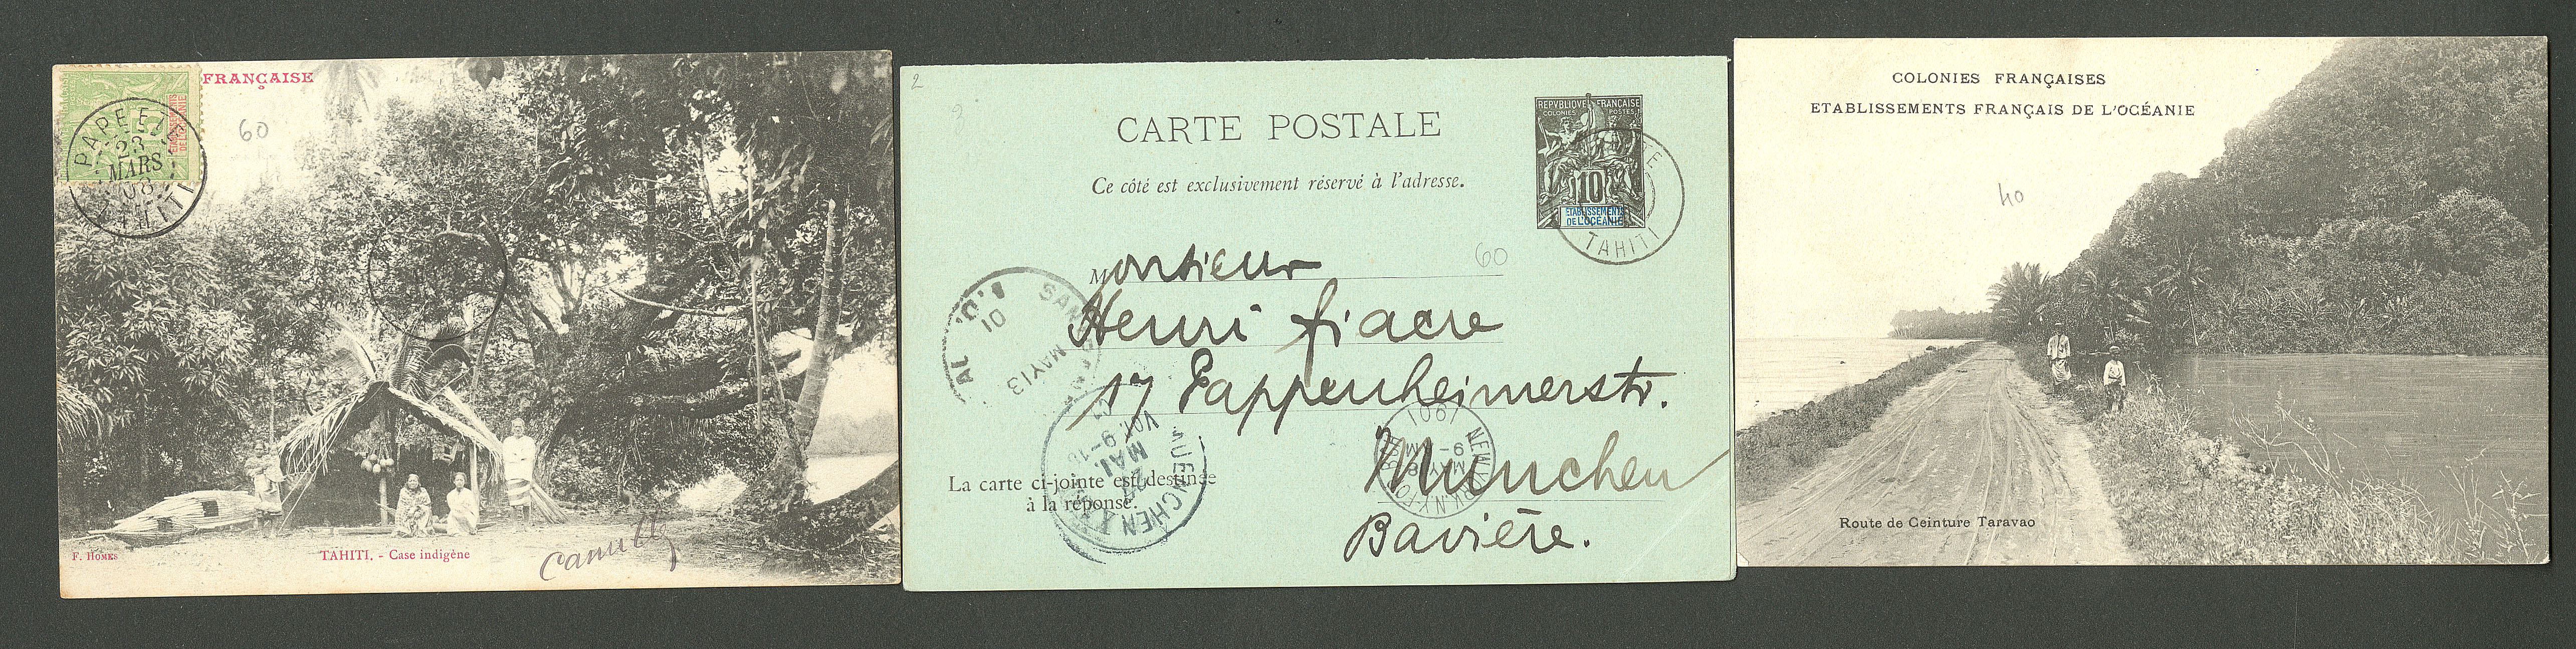 FRANÇAISE
ETABLISSEMENTS
DE L'OCÉANIE
PAPEETE
23
MARS
08
TAHITI
60
F. HOMES
TAHITI. - Case indigène
2
3
CARTE POSTALE
Ce côté est exclusivement réservé à l'adresse.
REPVBLIQVE FRANÇAISE
COLONIES POSTES
10
ETABLISSEMENTS
DE L'OCÉANIE
TAHITI
60
Monsieur
Henri fiacre
17 Pappenheimerstr.
München
Bavière.
La carte ci-jointe est destinée
à la réponse.
SAN
MAY 13
01
MUENCHEN
27
MAI.
Vor. 9-10
NEW YORK, N.Y.
MAY
9-
1901
COLONIES FRANÇAISES
ETABLISSEMENTS FRANÇAIS DE L'OCÉANIE
40
Route de Ceinture Taravao